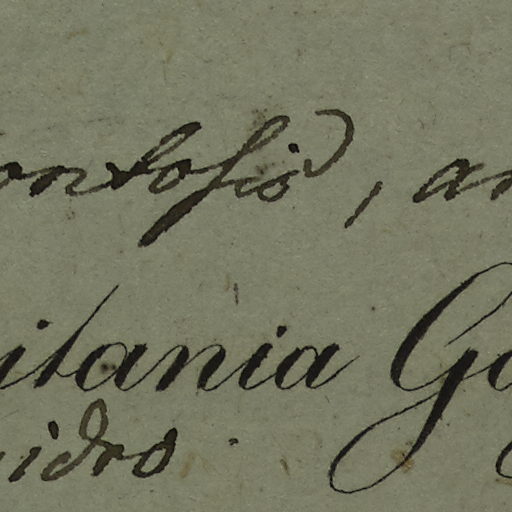 ontosio, an
itania Go
idro